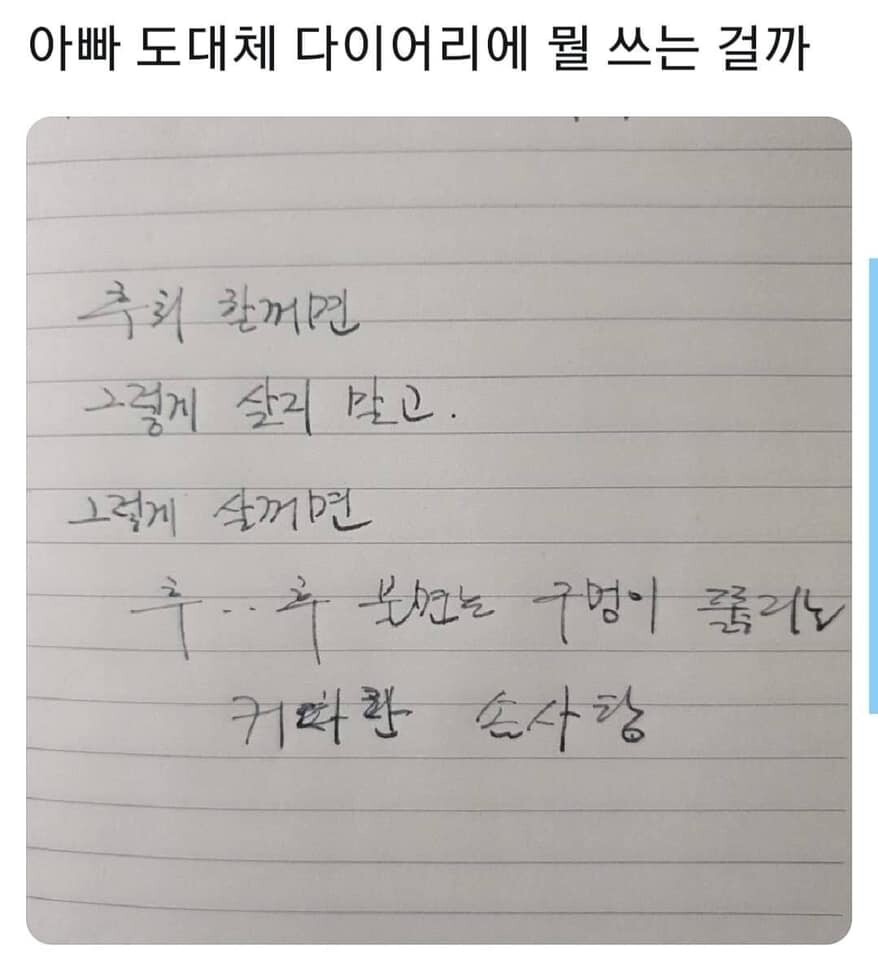 아빠 도대체 다이어리에 뭘 쓰는 걸까
후회 할꺼면
그렇게 살지 말고.
그렇게 살꺼면
후.. 후 불면은 구멍이 뚫리는
커따란 솜사탕